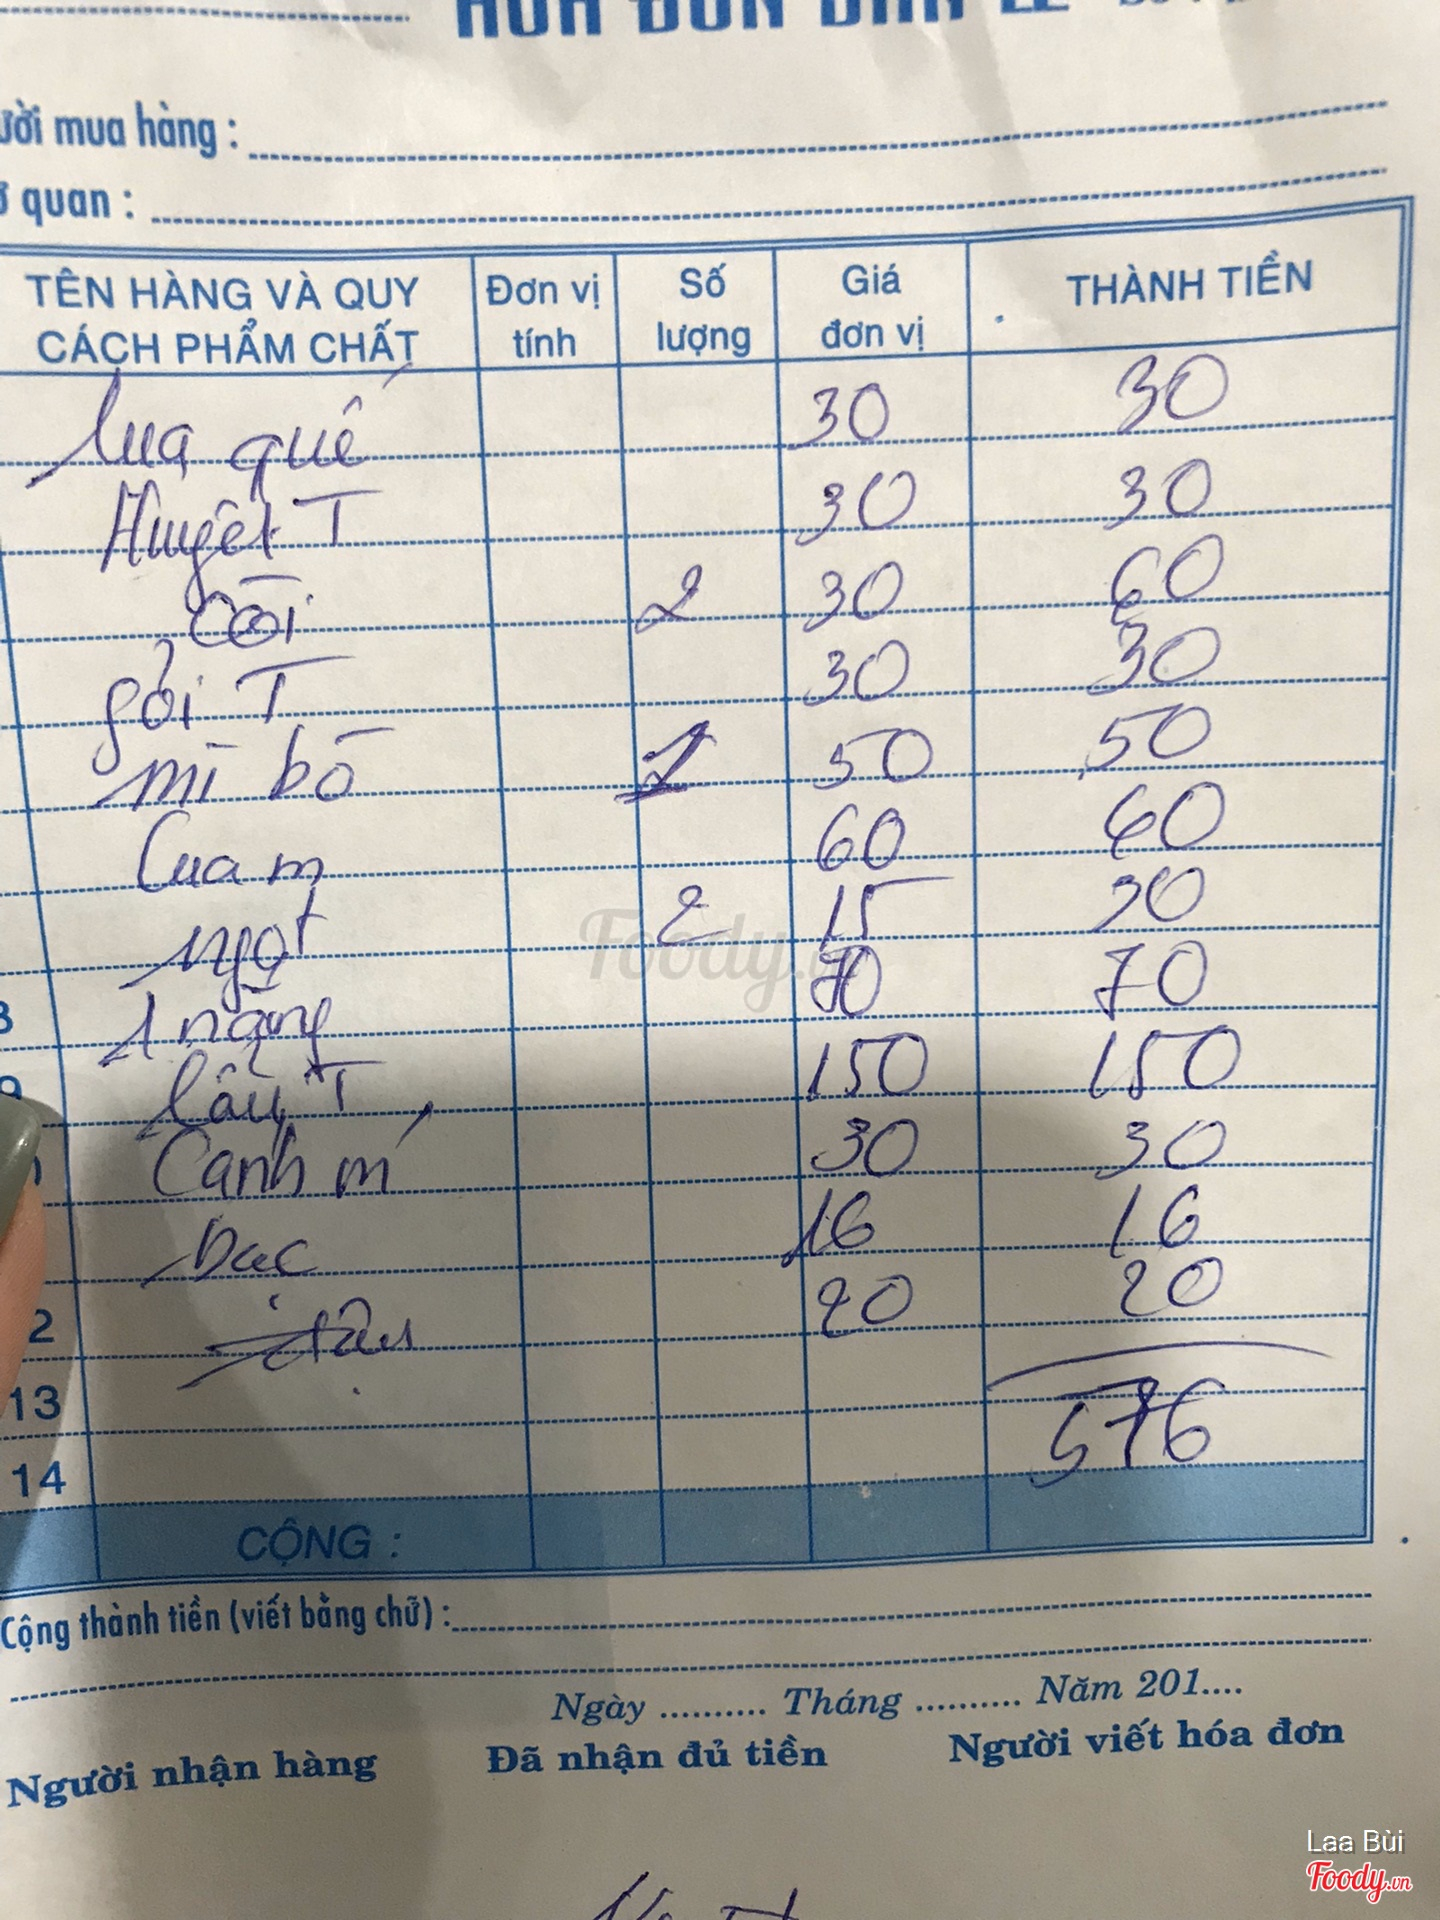 HÓA ĐƠN BÁN LẺ
ười mua hàng :
ơ quan :
TÊN HÀNG VÀ QUY CÁCH PHẨM CHẤT Đơn vị tính Số lượng Giá đơn vị THÀNH TIỀN
lua quế 30 30
Huyết T 30 30
Còi 2 30 60
gỏi T 30 30
mì bò 1 50 50
Cua m 60 60
ngọt 2 15 30
8 1 nắng 70 70
9 lẩu T 150 150
Canh m 30 30
16 16
12 20 20
13 576
14
CỘNG :
Cộng thành tiền (viết bằng chữ) :
Ngày .......... Tháng .......... Năm 201....
Người nhận hàng Đã nhận đủ tiền Người viết hóa đơn
Foody.vn
Laa Bùi
Foody.vn